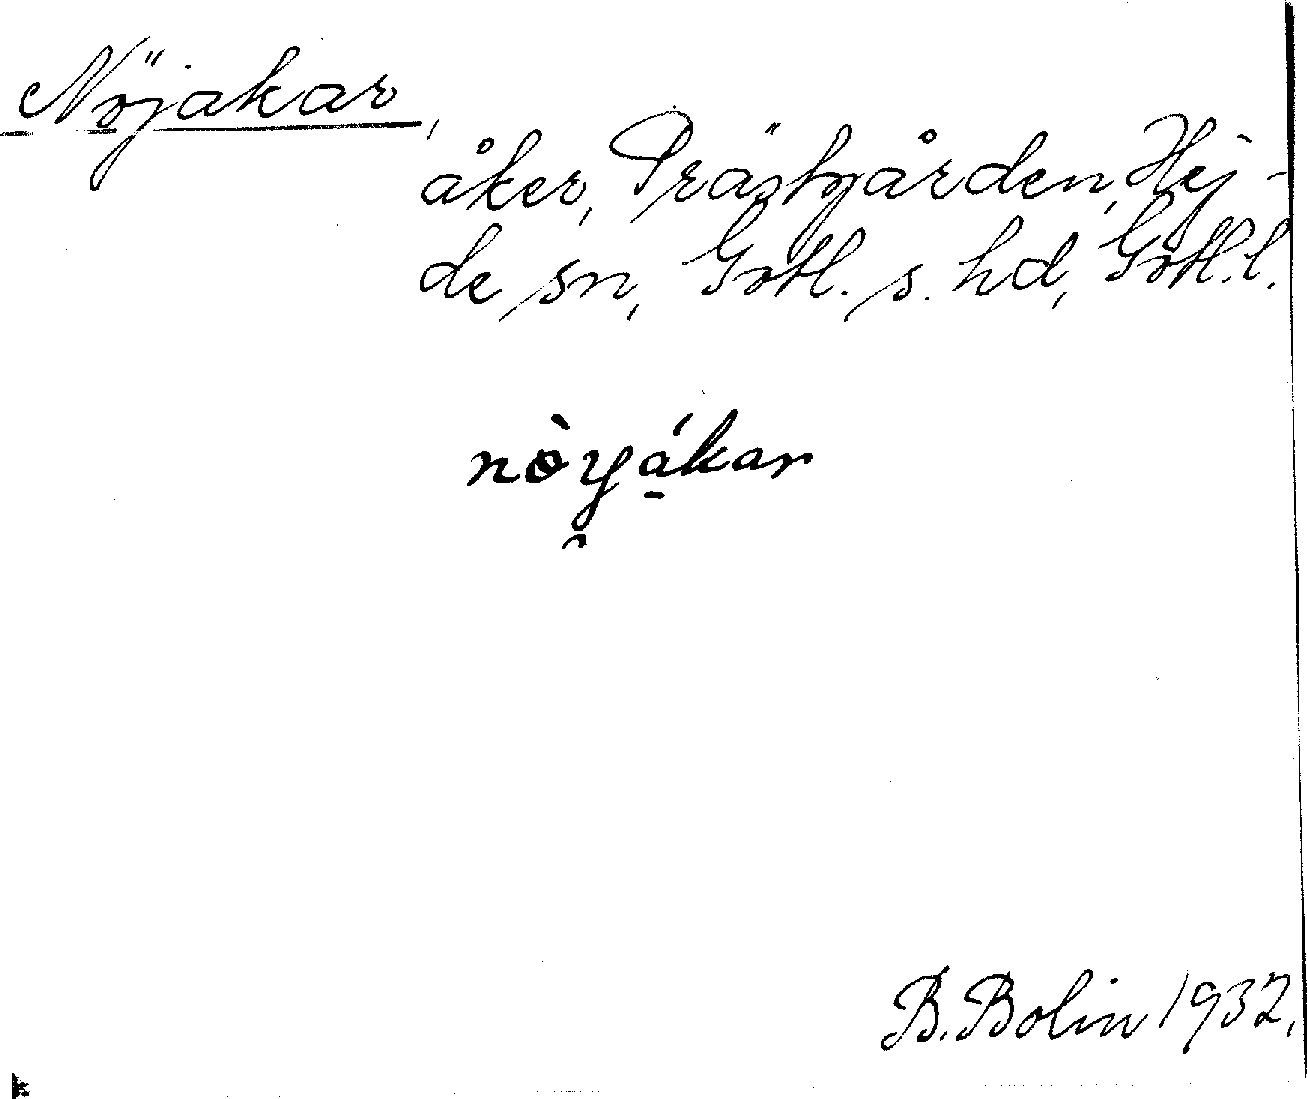 Nöjakar,
åker, Prästgården, Hej-
de sn, Gotl. s. hd, Gotl. l.
nòy̯á̱kar
B. Bolin 1932.